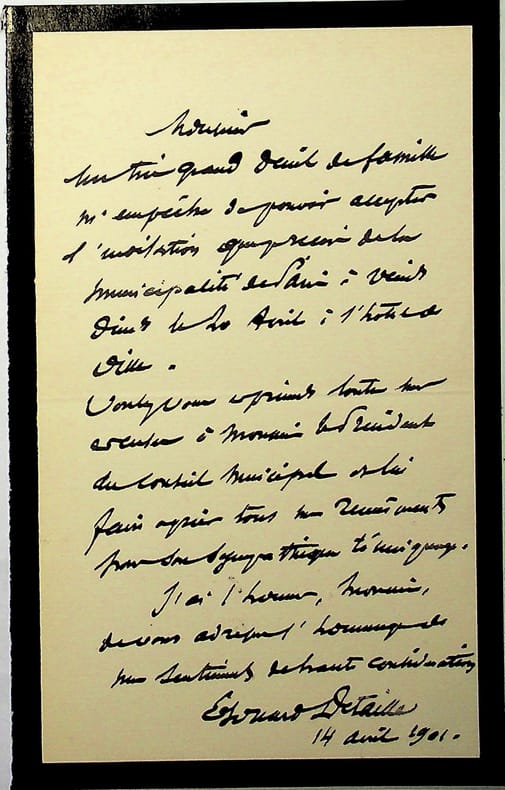 Monsieur
Un très grand deuil de famille
m'empêche de pouvoir accepter
l'invitation que je reçois de la
municipalité de Paris à venir
dîner le 20 Avril à l'hôtel de
Ville.
Voulez vous exprimer toutes mes
excuses à Monsieur le Président
du Conseil Municipal et lui
faire agréer tous mes remerciements
pour son sympathique témoignage.
J'ai l'honneur, Monsieur,
de vous adresser l'hommage de
mes sentiments de haute considération
Edouard Detaille
14 avril 1901.